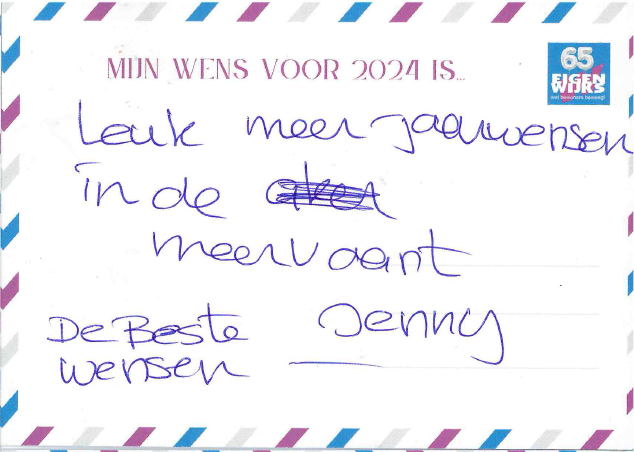 MIJN WENS VOOR 2024 IS...
65
EIGEN
WIJKS
Leuk meer jaarwensen
in de
meervaart
De Beste Jenny
wensen